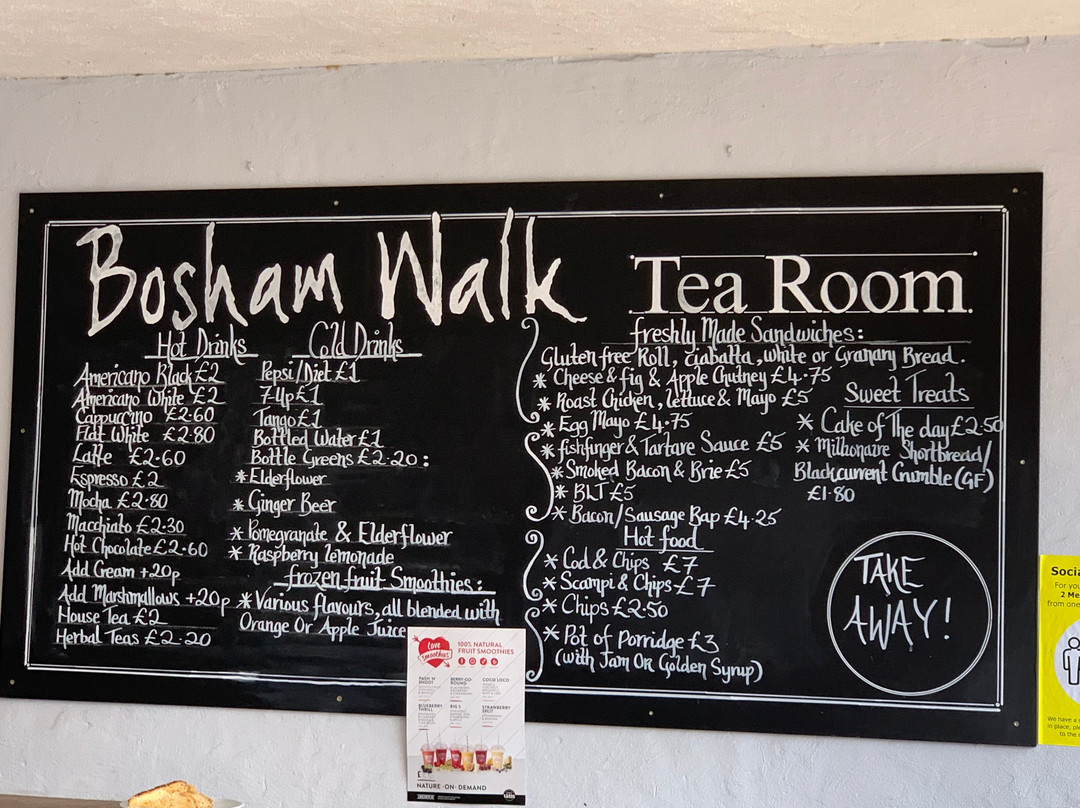 Bosham Walk
Tea Room.
Hot Drinks
Americano Black £2
Americano White £2
Cappuccino £2·60
Flat White £2·80
Latte £2·60
Espresso £2
Mocha £2·80
Macchiato £2·30
Hot Chocolate £2·60
Add Cream +20p
Add Marshmallows +20p
House Tea £2
Herbal Teas £2·20
Cold Drinks
Pepsi/Diet £1
7Up £1
Tango £1
Bottled Water £1
Bottle Greens £2·20:
* Elderflower
* Ginger Beer
* Pomegranate & Elderflower
* Raspberry lemonade
frozen fruit Smoothies:
* Various flavours, all blended with
Orange Or Apple Juice
freshly Made Sandwiches:
Gluten free Roll, ciabatta, white or Granary Bread.
* Cheese & fig & Apple Chutney £4·75
* Roast Chicken, lettuce & Mayo £5
* Egg Mayo £4·75
* fishfinger & Tartare Sauce £5
* Smoked Bacon & Brie £5
* BLT £5
* Bacon/Sausage Bap £4·25
Hot food
* Cod & Chips £7
* Scampi & Chips £7
* Chips £2·50
* Pot of Porridge £3
(with Jam OR Golden Syrup)
Sweet Treats
* Cake of The day £2·50
* Millionaire Shortbread/
Blackcurrent Crumble (GF)
£1·80
TAKE
AWAY!
love
smoothies
100% NATURAL
FRUIT SMOOTHIES
PASH 'N'
SHOOT
BERRY-GO-
ROUND
COCO LOCO
BLUEBERRY
THRILL
BIG 5
STRAWBERRY
SPLIT
NATURE-ON-DEMAND
Socia
For you
2 Me
from one
We have a
in place, ple
to the